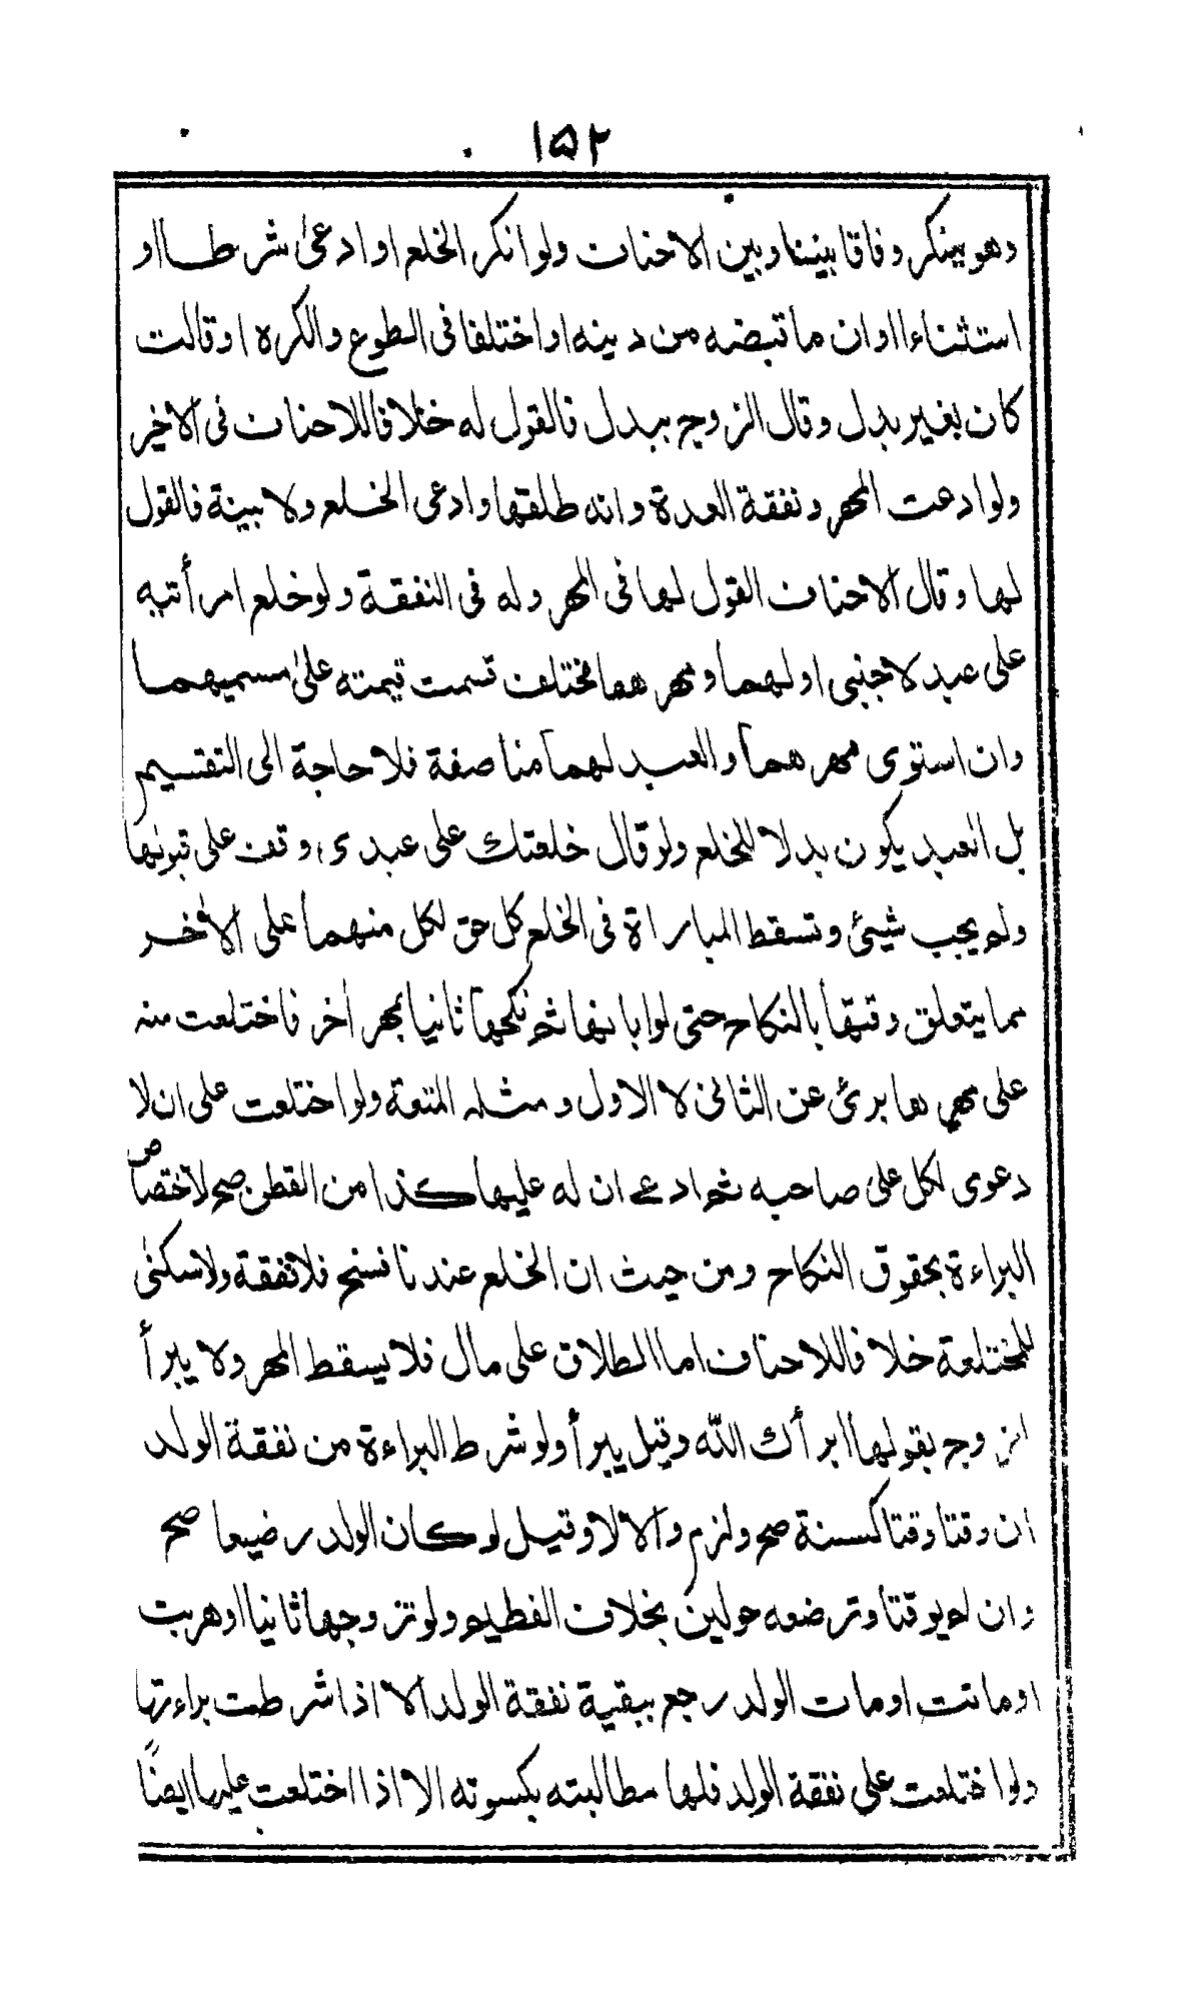 ١٥٢
وهو ينكر وفاقا بيننا وبين الاحناف ولو انكر الخلع او ادعىٰ شرطا او
استثناءا او ان ما قبضه من دينه او اختلفا فى الطوع والكره او قالت
كان بغير بدل وقال الزوج ببدل فالقول له خلافا للاحناف فى الاخير
ولو ادعت المهر ونفقة العدة وانه طلقها وادعى الخلع ولا بينة فالقول
لها وقال الاحناف القول لها فى المهر وله فى النفقة ولو خلع امرأتيه
على عبد لاجنبى او لهما ومهرهما مختلف قسمت قيمته علىٰ مسميهما
وان استوى مهرهما والعبد لهما مناصفة فلا حاجة الى التقسيم
بل العبد يكون بدلا للخلع ولو قال خلعتك على عبدى وقف على قبولها
ولم يجب شيئ وتسقط المباراة فى الخلع كل حق لكل منهما على الاٰخر
مما يتعلق وقتها بالنكاح حتى لو ابانها ثم نكحها ثانيا بمهر اٰخر فاختلعت منه
على مهرها برئ عن الثانى لا الاول ومثله المتعة ولو اختلعت على ان لا
دعوى لكل على صاحبه ثم ادعى ان له عليها كذا من القطن صح لاختصاص
البراءة بحقوق النكاح ومن حيث ان الخلع عندنا فسخ فلا نفقة ولا سكنىٰ
للمختلعة خلافا للاحناف اما الطلاق على مال فلا يسقط المهر ولا يبرأ
الزوج بقولها ابرأك الله وقيل يبرأ ولو شرط البراءة من نفقة الولد
ان وقتا وقتا كسنة صح ولزم والا لا وقيل لو كان الولد رضيعا صح
وان لم يوقتا وترضعه حولين بخلاف الفطيم ولو تزوجها ثانيا او هربت
او ماتت او مات الولد رجع ببقية نفقة الولد الا اذا شرطت براءتها
ولو اختلعت على نفقة الولد فلها مطالبته بكسوته الا اذا اختلعت عليها ايضًا